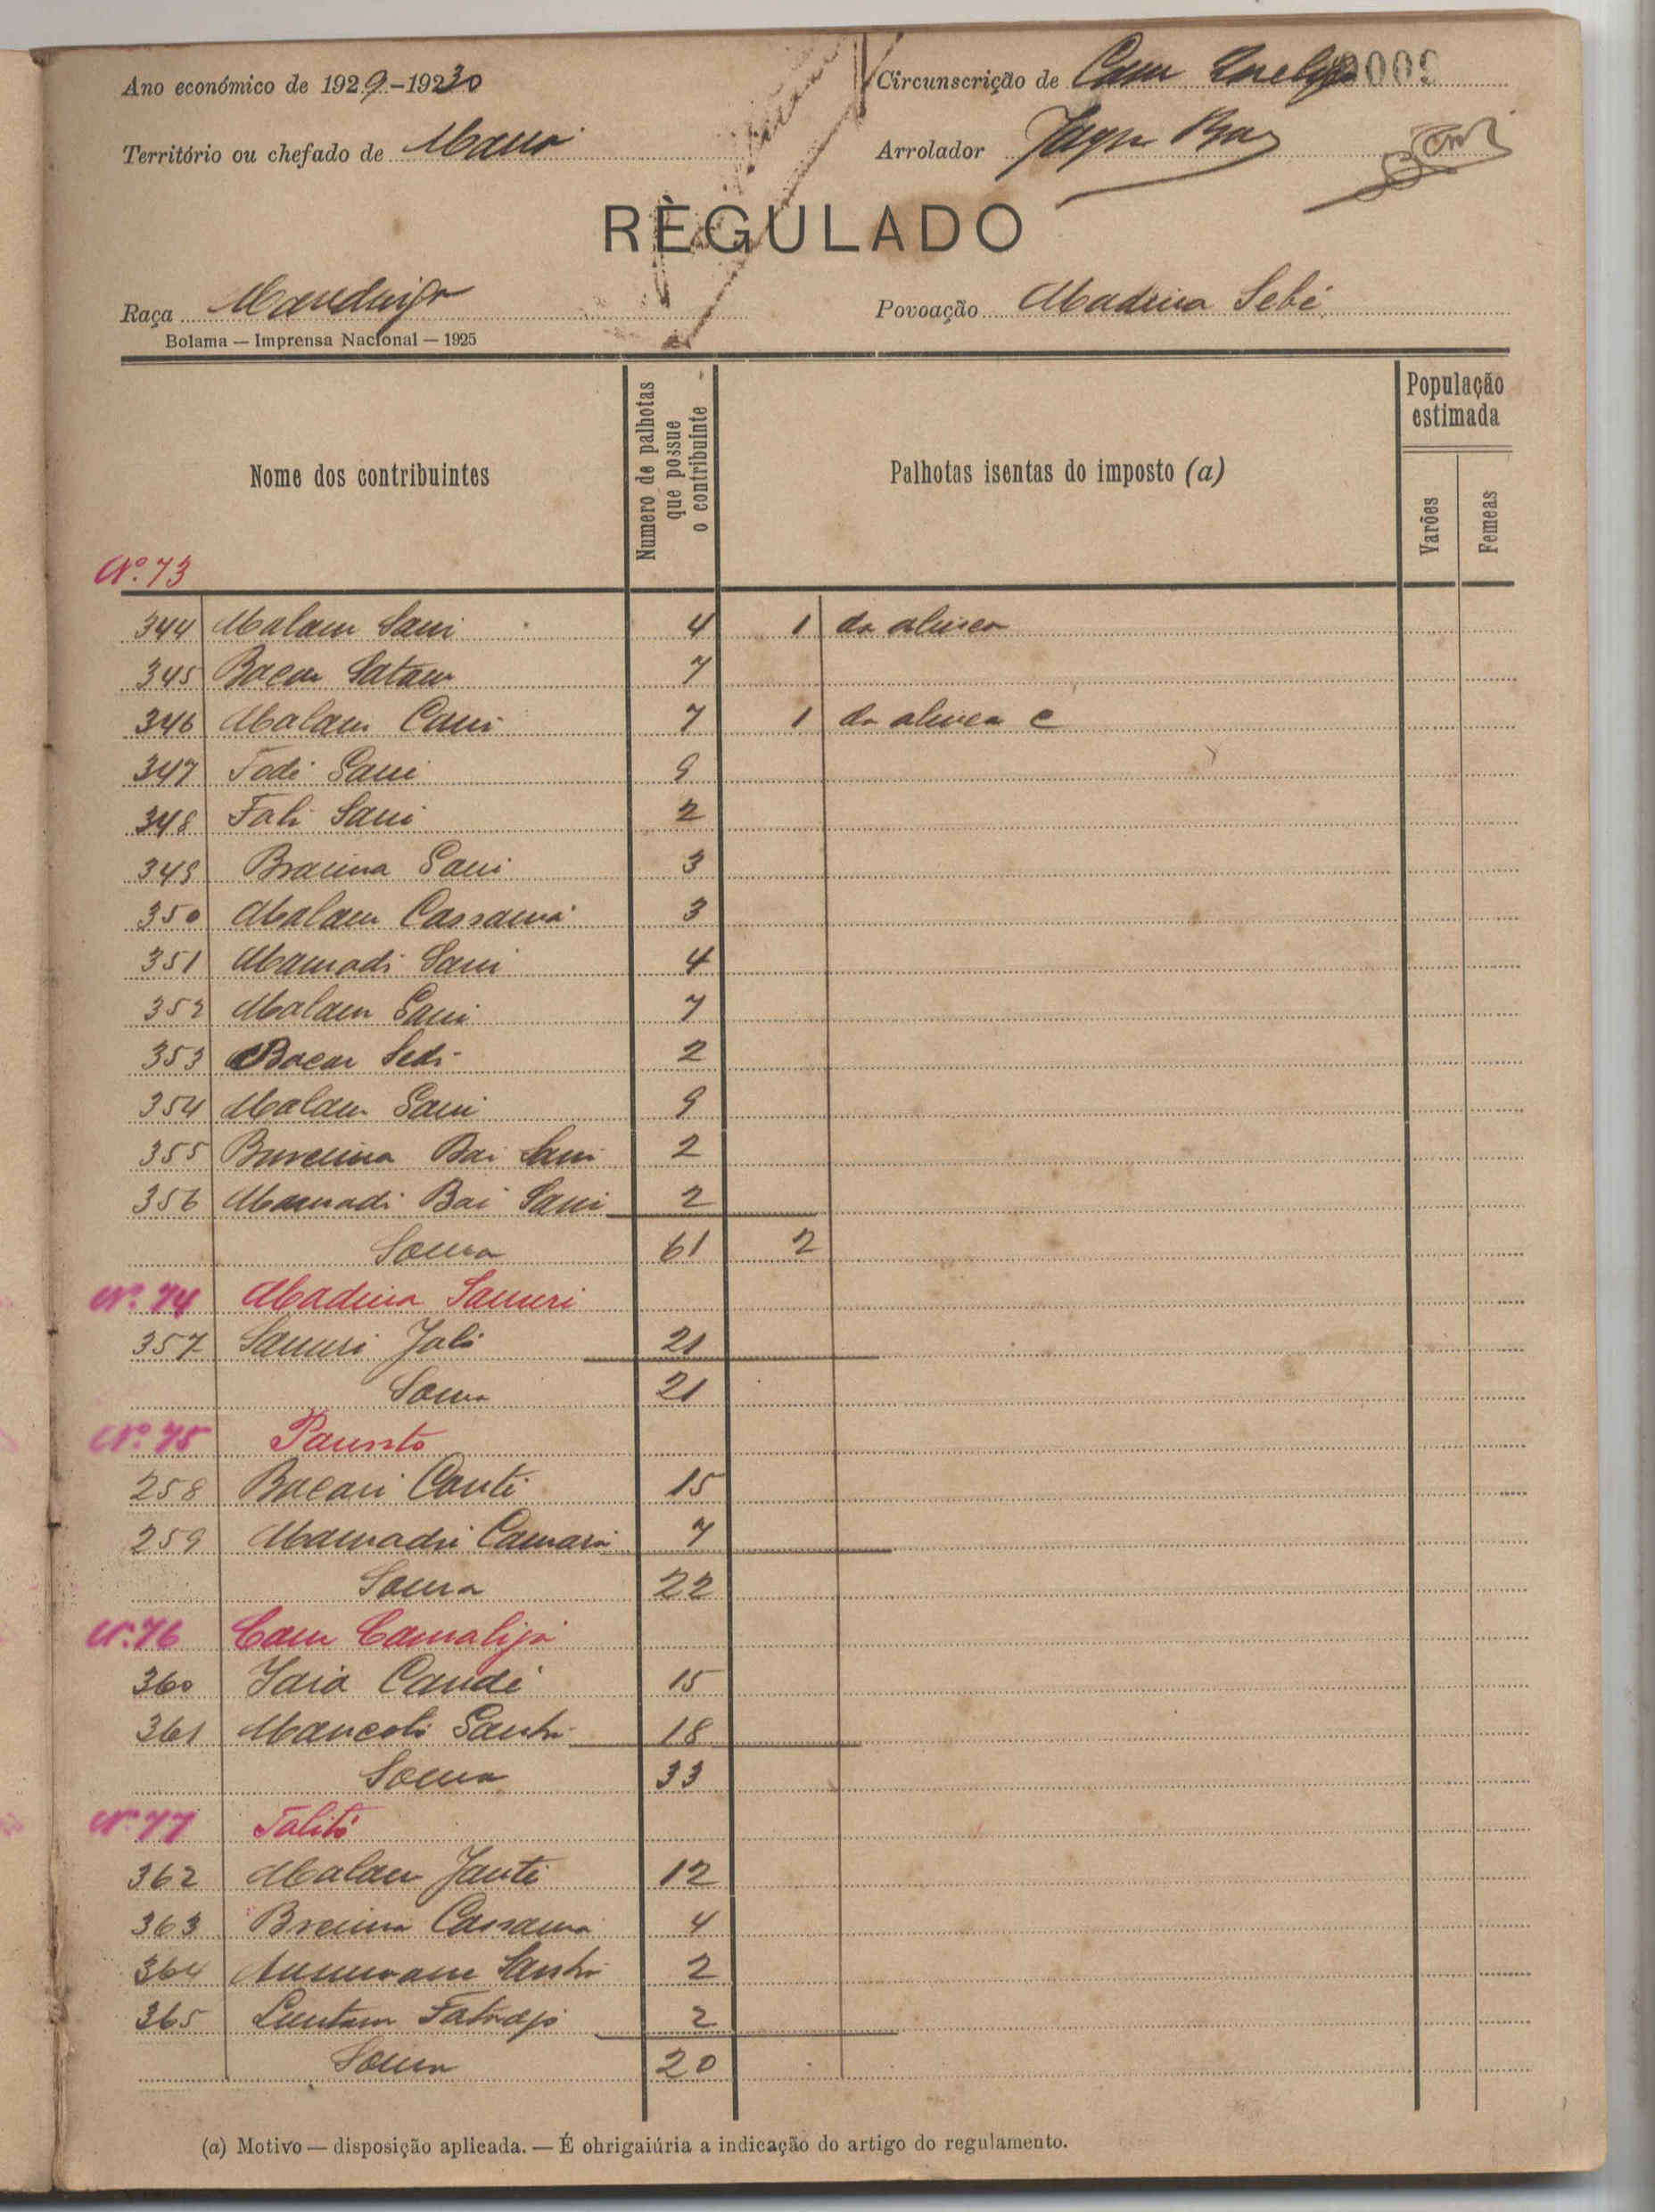 Ano económico de 1929-1930
Circunscrição de
0009
Território ou chefado de
Arrolador
RÈGULADO
Raça Mandinga
Povoação Madina Sebé
Bolama — Imprensa Nacional — 1925
Nome dos contribuintes
Numero de palhotas que possue o contribuinte
Palhotas isentas do imposto (a)
População estimada
Varões
Femeas
Nº. 73
344 Malam Sani 4 1 da alinea
345 Bacar 7
346 Malam Cani 7 1 da alinea c
347 Fodé Sani 9
348 Fali Sani 2
349 Braima Sani 3
350 Malam Cassamá 3
351 Mamadi Sani 4
352 Malam Sani 7
353 Bacar 2
354 Malam Sani 9
355 Bai Sani 2
356 Mamadi Bai Sani 2
Soma 61 2
Nº. 74 Madina Samuri
357 Samuri Jali 21
Soma 21
Nº. 75
258 Bacari Conté 15
259 Mamadú Camará 7
Soma 22
Nº. 76 Cam Camalijá
360 Iaia Candé 15
361 Mancoli 18
Soma 33
Nº 77 Talitó
362 Malam 12
363 Breima Cassama 4
364 2
365 2
Soma 20
(a) Motivo — disposição aplicada. — É ohrigaiúria a indicação do artigo do regulamento.